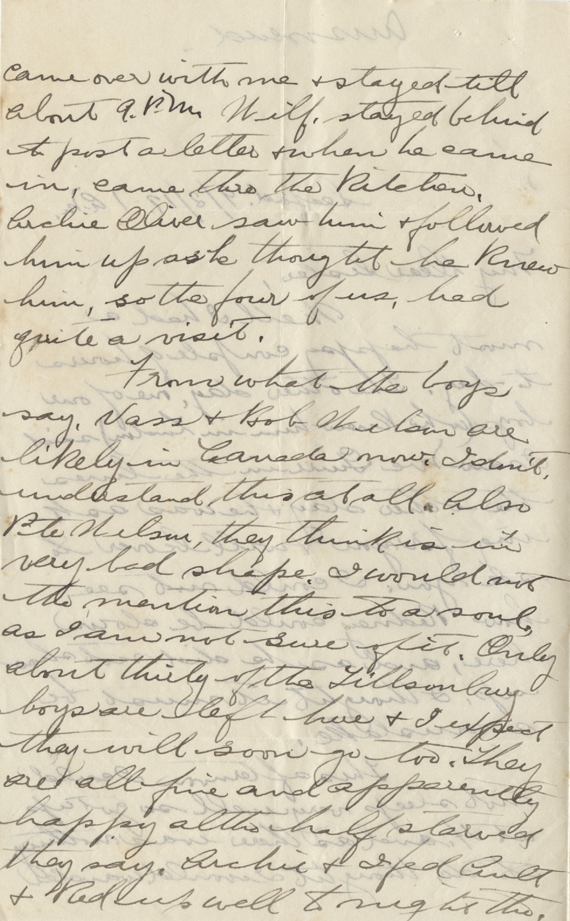 came over with me & stayed till
about 9. P.M. Wilf. stayed behind
to post a letter & when he came
in, came thro the Kitchen.
Archie Oliver saw him & followed
him up as he thought he knew
him, so the four of us, had
quite a visit.
From what the boys
say, Vass & Bob Nelson are
likely in Canada now. I don't
understand, this at all. Also
Pte Nelson, they think is in
very bad shape. I would not
tho mention this to a soul,
as I am not sure of it. Only
about thirty of the Tillsonburg
boys are left here & I expect
they will soon go too. They
are all fine and apparently
happy altho half starved
they say. Archie & I fed Ault
& Red up well tonight tho.